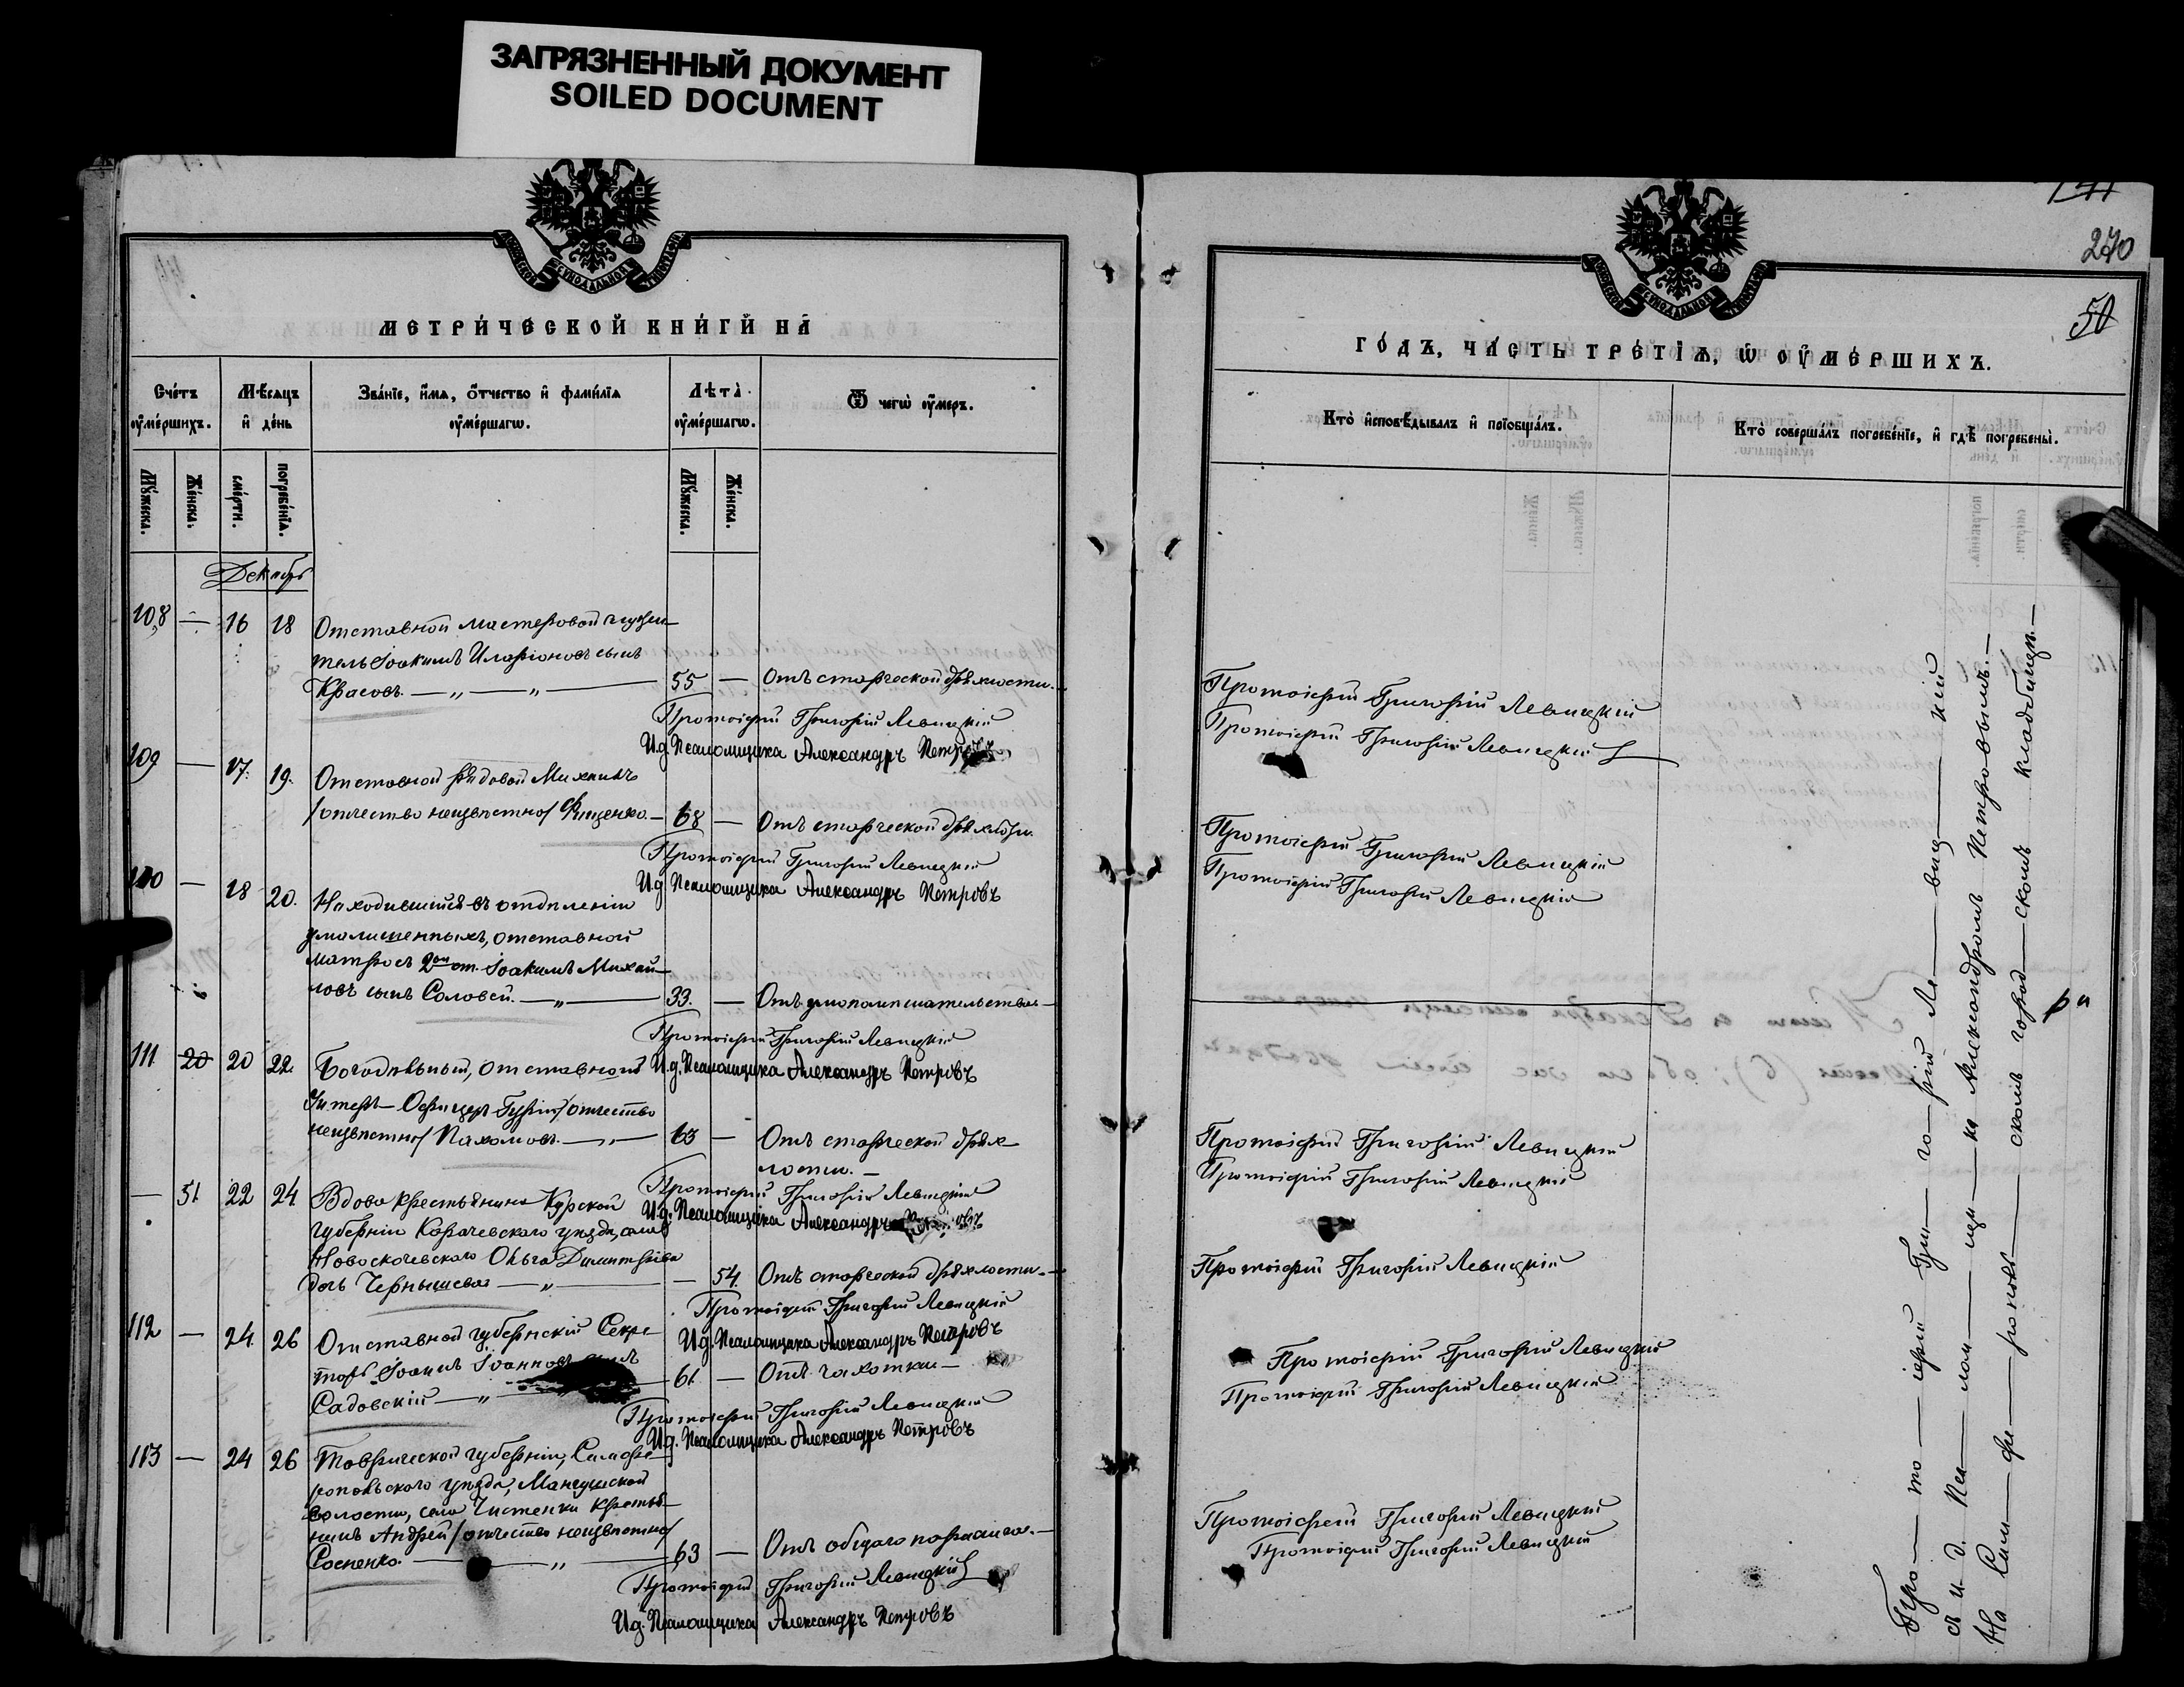 ЗАГРЯЗНЕННЫЙ ДОКУМЕНТ
SOILED DOCUMENT
МЕТРИ́ЧЕСКОЙ КНИ́ГИ НА̀
Сче́тъ оу҆ме́ршихъ.
Мѣ́сяцъ и҆ де́нь
Зва́нїе, и҆́мѧ, ѻ҆́тчество и҆ фами́лїѧ оу҆ме́ршагѡ.
Лѣта̀ оу҆ме́ршагѡ.
Ѿ чегѡ̀ оу҆́меръ.
Мꙋ́жеска.
Же́нска.
сме́рти.
погребе́нїѧ.
Мꙋ́жеска.
Же́нска.
Декабрь
108 — 16 18 Отставной мастеровой
Іоакимъ Иларіоновъ сынъ
Красовъ. — „ — „ — 55 — Отъ старческой дряхлости.
Протоіерей Григорій Левицкій
И.д. Псаломщика Александръ Петровъ
109 — 17. 19. Отставной рядовой Михаилъ
/отчество неизвѣстно/ Фищенко. — 68 — Отъ старческой дряхлости.
Протоіерей Григорій Левицкій
И.д. Псаломщика Александръ Петровъ
110 — 18 20. Находившійся въ отдѣленіи
умалишенныхъ, отставной
матросъ 2ой ст. Іоакимъ Михай-
ловъ сынъ Соловей. — „ — 33. — Отъ умопомѣшательства —
Протоіерей Григорій Левицкій
И.д. Псаломщика Александръ Петровъ
111 20 20 22. Богодѣльный, отставной
Унтеръ-Офицеръ Гурій /отчество
неизвѣстно/ Пахомовъ. — „ — 63 — Отъ старческой дрях-
лости. —
Протоіерей Григорій Левицкій
И.д. Псаломщика Александръ
— 51. 22 24 Вдова крестьянина Курской
губерніи Корачевского уѣзда, села
Новоскочевского Ольга Димитріева
дочь Чернышева — „ — — 54. Отъ старческой дряхлости. —
Протоіерей Григорій Левицкій
И.д. Псаломщика Александръ Петровъ
112 — 24. 26 Отставной губернскій Секре-
тарь Іоаннъ Іоанновъ сынъ
Садовскій — „ 61. — Отъ чахотки —
Протоіерей Григорій Левицкій
И.д. Псаломщика Александръ Петровъ
113 — 24 26 Таврической губерніи, Симфе-
ропольского уѣзда, Мангушской
волости, села Чистенки крестья-
нинъ Андрей /отчество неизвѣстно/
Соспенко. — „ — 63 — Отъ общаго паралича. —
Протоіерей Григорій Левицкій
И.д. Псаломщика Александръ Петровъ
270
50
ГО́ДЪ, ЧА́СТЬ ТРЕ́ТЇѦ, Ѡ҆ ОУ҆МЕ́РШИХЪ.
Кто̀ и҆сповѣ́дывалъ и҆ прїѻбща́лъ.
Кто̀ соверша́лъ погребе́нїе, и҆ гдѣ̀ погребены̀.
Протоіерей Григорій Левицкій
Протоіерей Григорій Левицкій
Протоіерей Григорій Левицкій
Протоіерей Григорій Левицкій
Протоіерей Григорій Левицкій
Протоіерей Григорій Левицкій
Протоіерей Григорій Левицкій
Протоіерей Григорій Левицкій
Протоіерей Григорій Левицкій
Протоіерей Григорій Левицкій
Протоіерей Григорій Левицкій
Про — то — іерей Гри — го — рій Ле — виц — кій
съ и. д. Пса — лом — щи — ка Александромъ Петровымъ. —
На Сим — фе — рополь — скомъ город — скомъ кладбищѣ. —